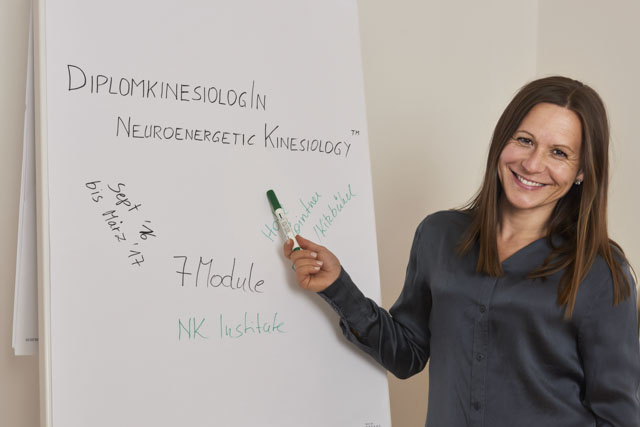 DIPLOMKINESIOLOGIN
NEUROENERGETIC KINESIOLOGY™
Sept '16
bis März '17
/Kitzbühel
7 Module
NK Institute